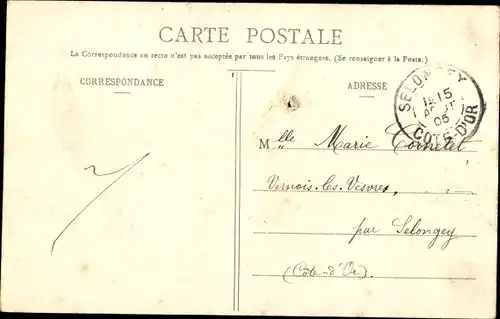 CARTE POSTALE
La Correspondance au recto n'est pas acceptée par tous les Pays étrangers. (Se renseigner à la Poste.)
CORRESPONDANCE
ADRESSE
SELONGEY
15
05
COTE-D'OR
Mlle Marie
Vernois-les-Vesvres,
par Selongey
(Côte-d'Or).